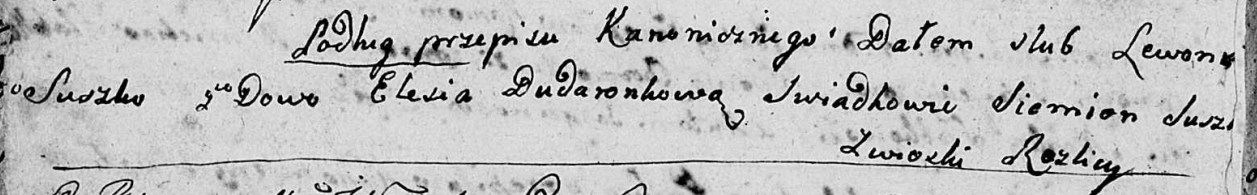 Podług przepisu Kanonicznego Dałem slub Lewon
Suszko Dowo Elesia Dudaronkową Swiadkowie Siemion Susz
Zwioski Rozlicy